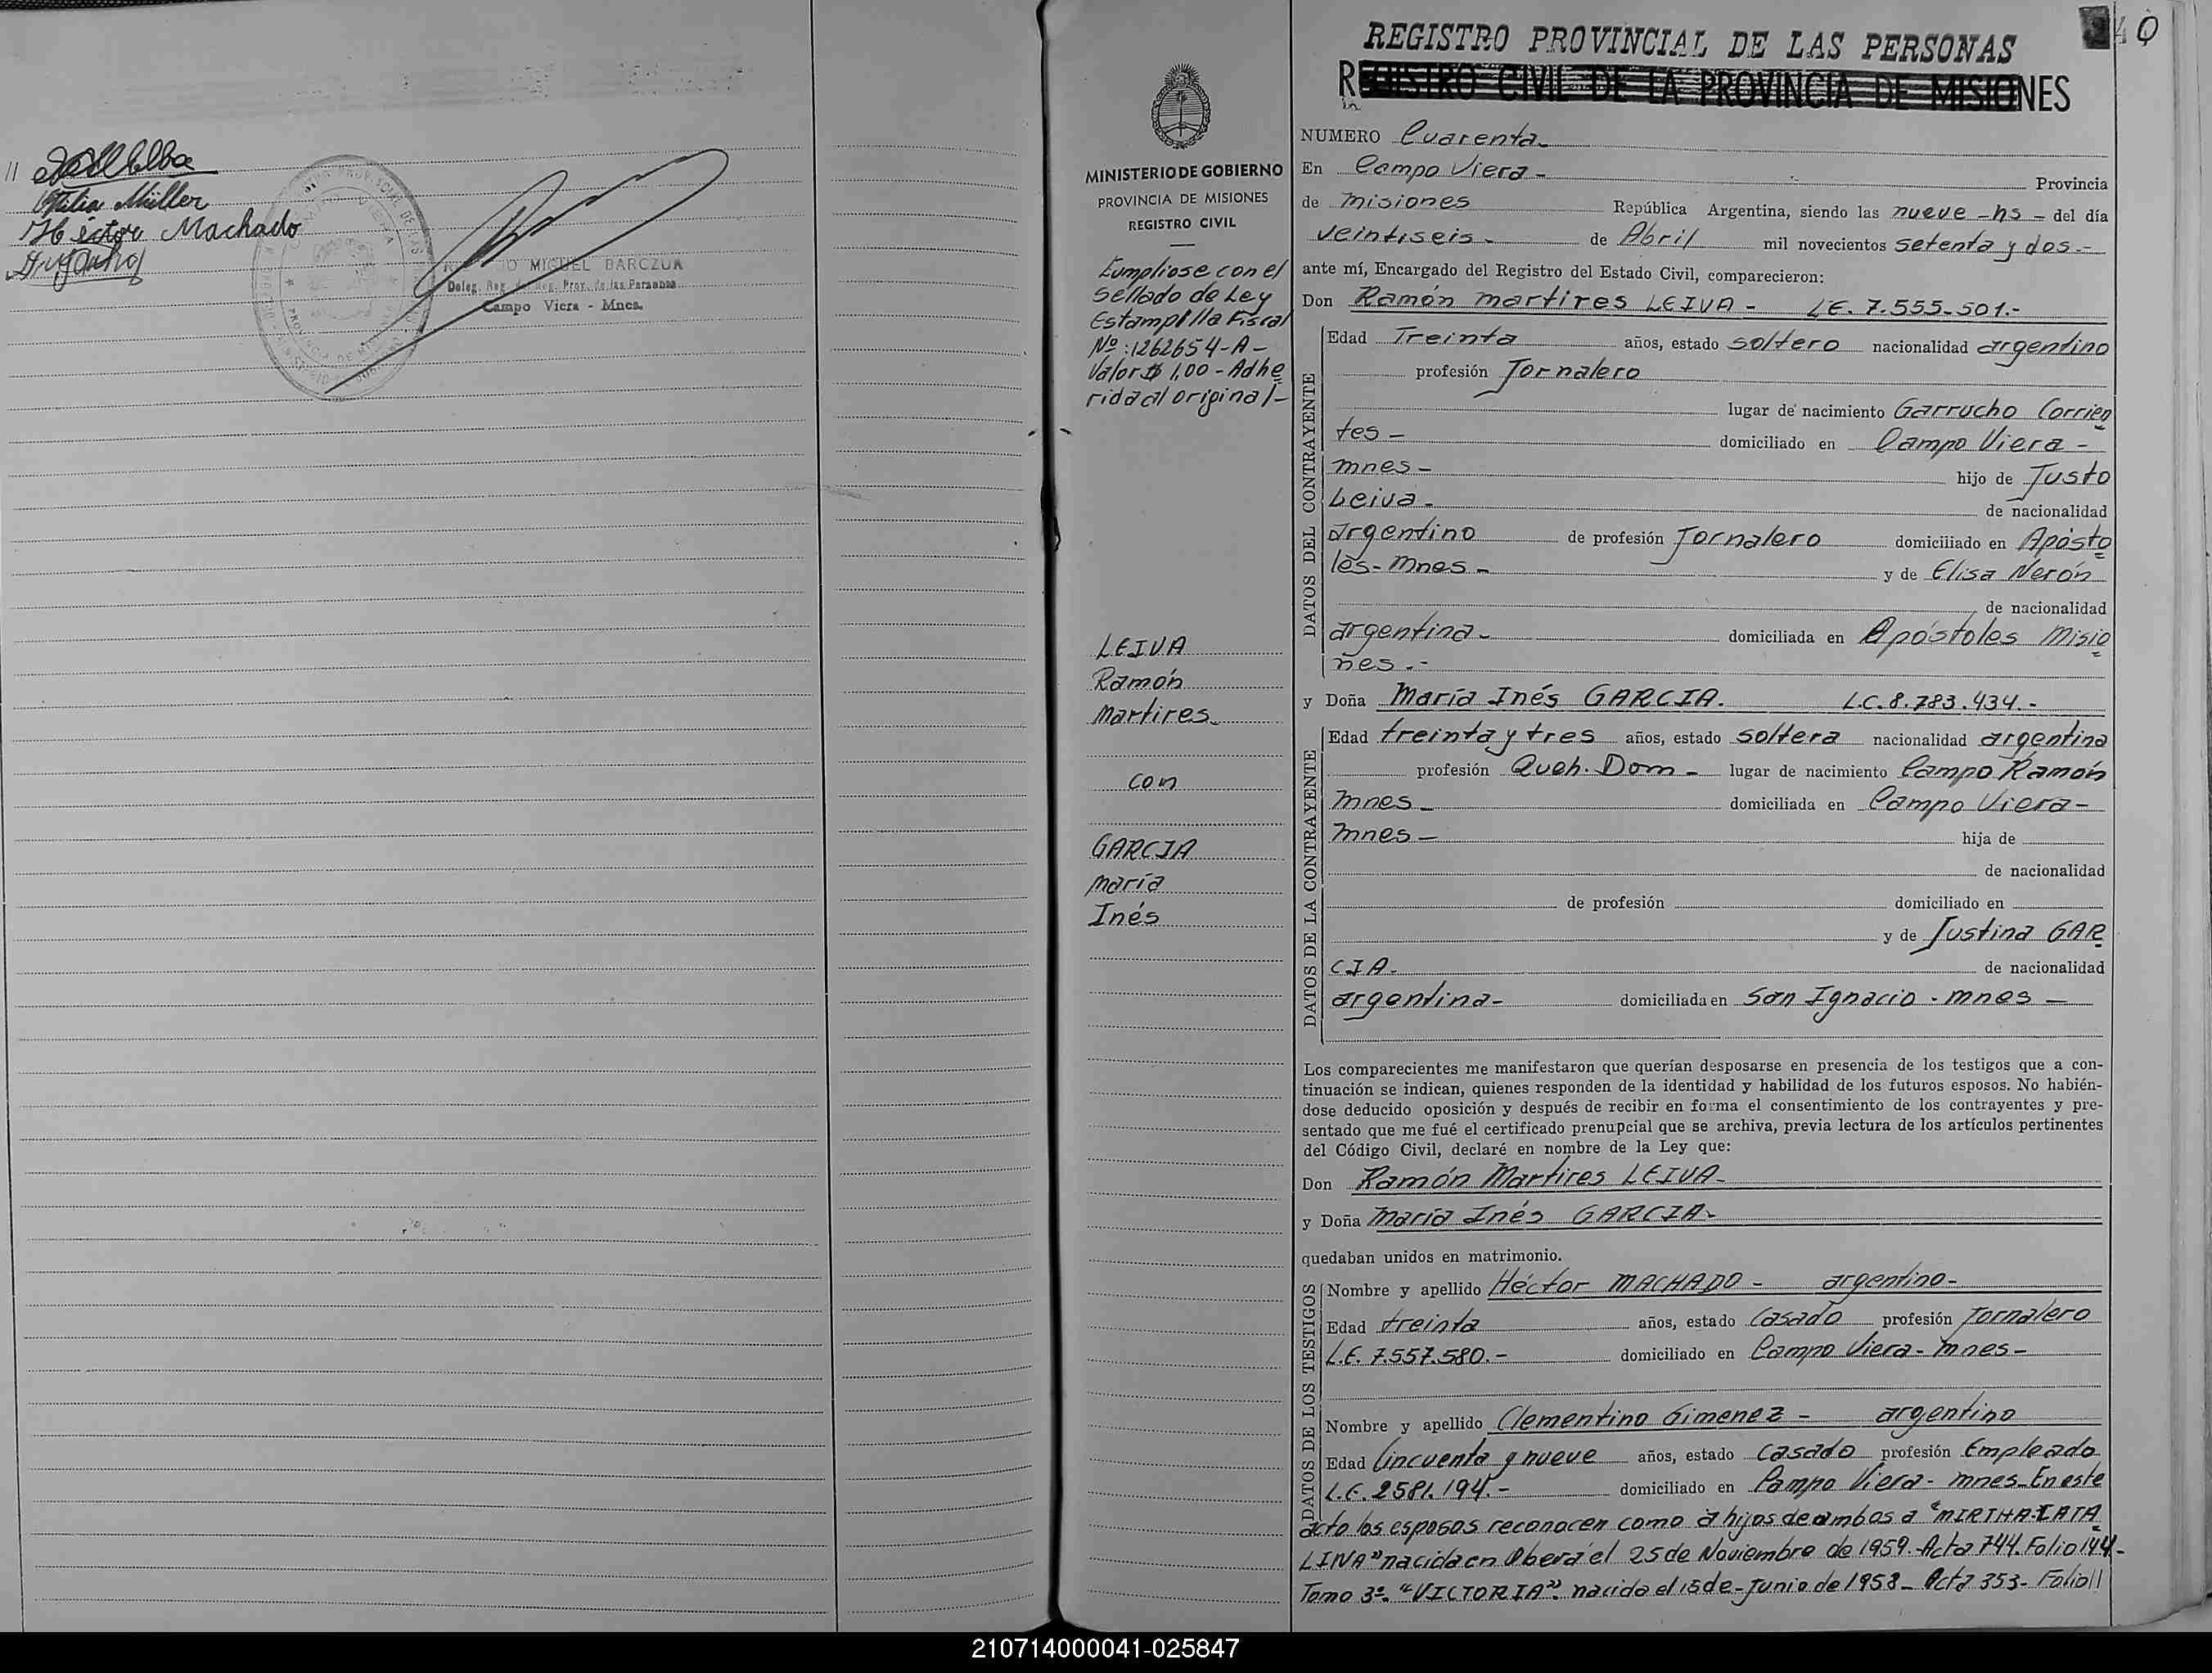 // 
Otilia Müller
Héctor Machado
MIGUEL BARCZUK
Deleg. Reg. del Reg. Prov. de las Personas
Campo Viera - Mnes.
MINISTERIO DE GOBIERNO
PROVINCIA DE MISIONES
REGISTRO CIVIL
Cumpliose con el
Sellado de Ley
Estampilla Fiscal
Nº:1262654-A-
Valor $ 1,00-Adhe
rida al original-
LEIVA
Ramón
Martires-
con
GARCIA
María
Inés
40
REGISTRO PROVINCIAL DE LAS PERSONAS
REGISTRO CIVIL DE LA PROVINCIA DE MISIONES
NUMERO Cuarenta-
En Campo Viera- Provincia
de Misiones República Argentina, siendo las nueve -hs- del día
veintiseis- de Abril mil novecientos setenta y dos.-
ante mí, Encargado del Registro del Estado Civil, comparecieron:
Don Ramón Martires LEIVA- LE. 7.555.501.-
DATOS DEL CONTRAYENTE
Edad Treinta años, estado soltero nacionalidad argentino
profesión Jornalero
lugar de nacimiento Garrucho Corrien
tes- domiciliado en Campo Viera-
mnes- hijo de Justo
Leiva- de nacionalidad
argentino de profesión Jornalero domiciliado en Apósto
les-Mnes- y de Elisa Nerón
de nacionalidad
argentina- domiciliada en Apóstoles Misio
nes.-
y Doña María Inés GARCIA. L.C.8.783.434.-
DATOS DE LA CONTRAYENTE
Edad treinta y tres años, estado soltera nacionalidad argentina
profesión Queh. Dom- lugar de nacimiento Campo Ramón
mnes- domiciliada en Campo Viera-
mnes- hija de
de nacionalidad
de profesión domiciliado en
y de Justina GAR
CIA- de nacionalidad
argentina- domiciliada en San Ignacio-mnes-
Los comparecientes me manifestaron que querían desposarse en presencia de los testigos que a con-
tinuación se indican, quienes responden de la identidad y habilidad de los futuros esposos. No habién-
dose deducido oposición y después de recibir en forma el consentimiento de los contrayentes y pre-
sentado que me fué el certificado prenupcial que se archiva, previa lectura de los artículos pertinentes
del Código Civil, declaré en nombre de la Ley que:
Don Ramón Martires LEIVA-
y Doña María Inés GARCIA-
quedaban unidos en matrimonio.
DATOS DE LOS TESTIGOS
Nombre y apellido Héctor MACHADO- argentino-
Edad treinta años, estado casado profesión Jornalero
L.E. 7.557.580.- domiciliado en Campo Viera-Mnes-
Nombre y apellido Clementino Gimenez- argentino
Edad Cincuenta y nueve años, estado casado profesión Empleado
L.E. 2581.194.- domiciliado en Campo Viera-mnes-En este
acto los esposos reconocen como a hijos de ambos a "MIRTHA CATA
LINA" nacida en Oberá el 25 de Noviembre de 1959-Acta 744.Folio 144-
Tomo 3º. "VICTORIA". nacida el 15 de-Junio de 1958- Acta 353- Folio//
210714000041-025847